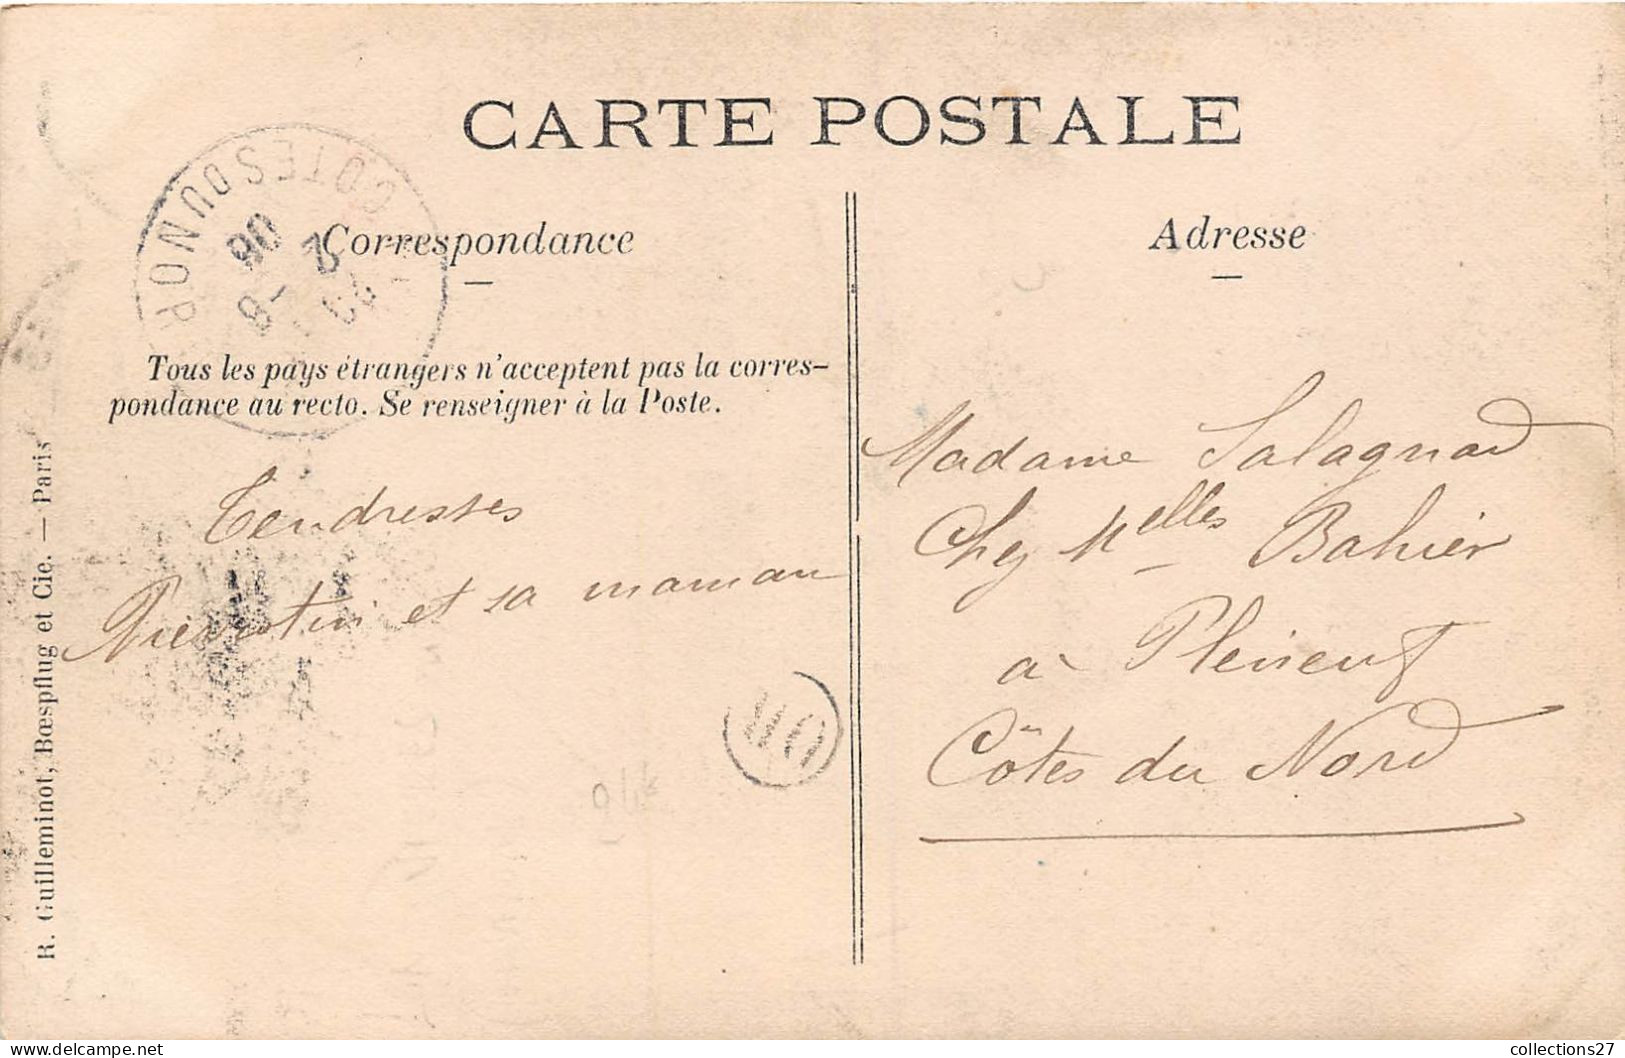 CARTE POSTALE
COTES DU NOR
Correspondance
Adresse
Tous les pays étrangers n'acceptent pas la corres-
pondance au recto. Se renseigner à la Poste.
Tendresses
Pierrotin et sa maman
Madame Salagnad
Chez Melles Bahier
à Pleneuf
Côtes du Nord
R. Guilleminot, Bœspflug et Cie. — Paris
collections27